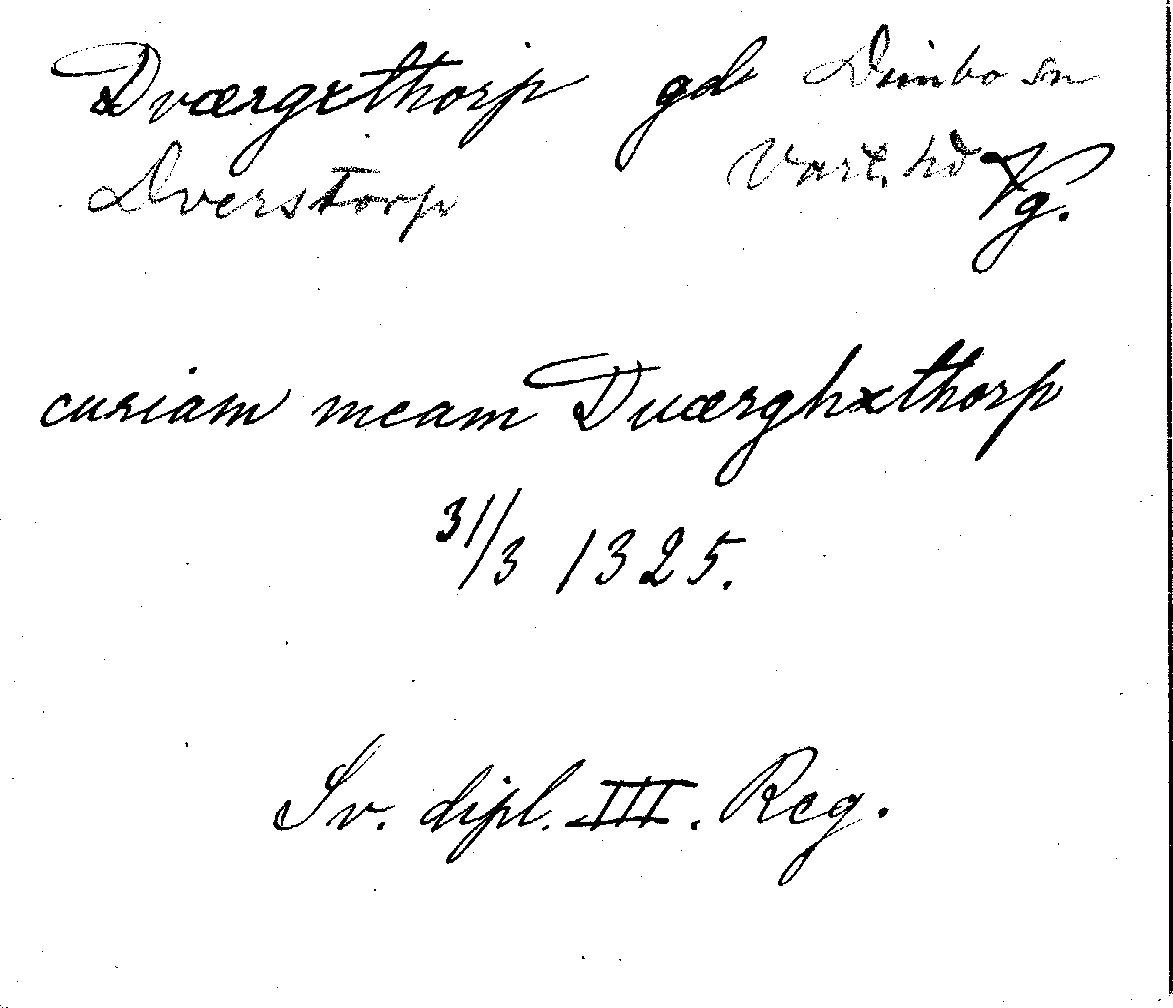 Dværgxthorp gd Dimbo sn
Dverstorp Vart. hd Vg.
curiam meam Duærghxthorp
31/3 1325.
Sv. dipl. III. Reg.